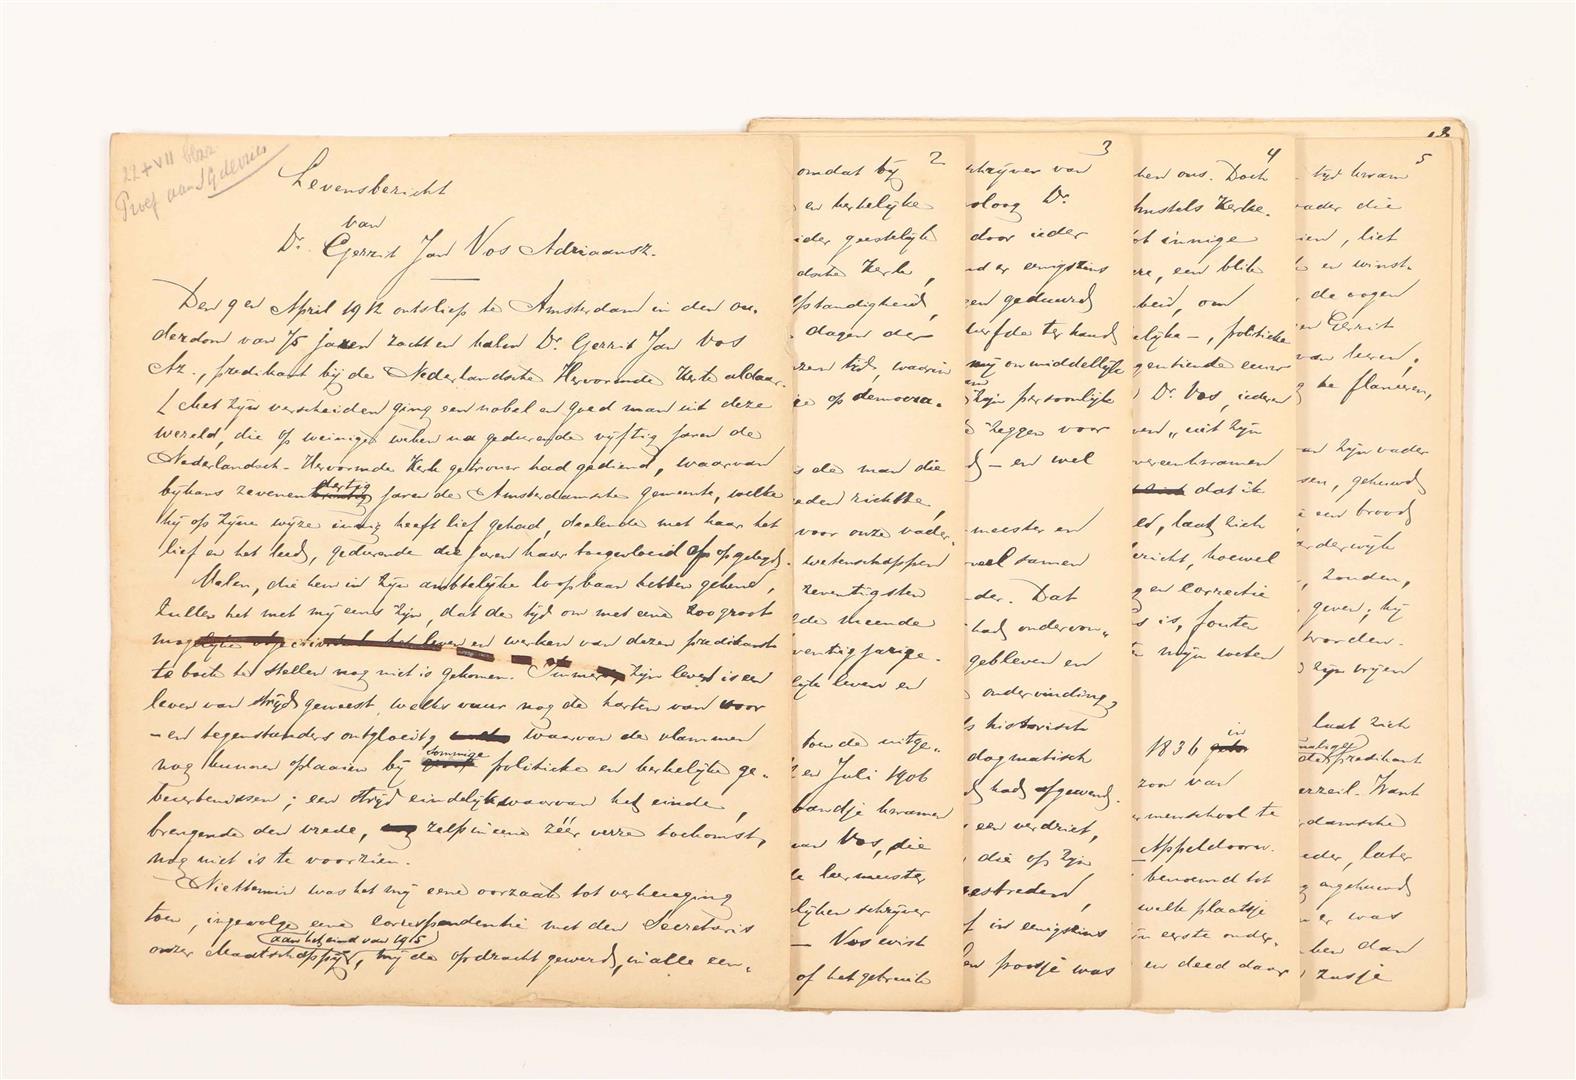 22 + VII blzz.
Proef aan G de Vries
Levensbericht
van
Dr. Gerrit Jan Vos Adriaansz.
Den 9en April 1912 ontsliep te Amsterdam in den ou-
derdom van 75 jaren zacht en kalm Dr. Gerrit Jan Vos
Az., predikant bij de Nederlandsche Hervormde Kerk aldaar.
Met zijn verscheiden ging een nobel en goed man uit deze
wereld, die op weinige weken na gedurende vijftig jaren de
Nederlandsch-Hervormde Kerk getrouw had gediend, waarvan
bijkans zevenendertig jaren de Amsterdamsche gemeente, welke
hij op zijne wijze innig heeft lief gehad, deelende met haar het
lief en het leed, gedurende die jaren haar toegevloeid of opgelegd.
Malen, die hem in zijn ambtelijke loopbaan hebben gekend,
zullen het met mij eens zijn, dat de tijd om met eene zoo groot
mogelijke objectiviteit het leven en werken van dezen predikant
te boek te stellen nog niet is gekomen. Immers, zijn leven is een
leven van strijd geweest, welks vuur nog de harten van voor
- en tegenstanders ontgloeit, waarvan de vlammen
nog kunnen oplaaien bij sommige politieke en kerkelijke ge-
beurtenissen; een strijd eindelijk waarvan het einde,
brengende den vrede, zelfs in eene zéér verre toekomst,
nog niet is te voorzien.
Niettemin was het mij eene oorzaak tot verheuging
toen, ingevolge eene correspondentie met den Secretaris
aan het eind van 1915
onzer Maatschappij, mij de opdracht gewerd, in alle een-
2
omdat hij
en kerkelijke
ieder geestelijk
dsche Kerk,
fstandigheid,
dagen der
zen tijd, waarin
ge op democra-
s de man die
eden richtte,
voor onze vader-
wetenschappen
zeventigsten
lde meende
ventigjarige
lijk leven en
toen de uitge-
en Juli 1906
bandje kwamen
van Vos, die
de leermeester
lijken schrijver
- Vos wist
of het gebruik
3
chrijver van
oloog Dr.
door ieder
nd er eenigszins
en geduurd
erfde ter hand
mij onmiddellijk
zijn persoonlijk
zeggen voor
- en wel
meester en
veel samen
der. Dat
had ondervon-
gebleven en
ondervinding
s historisch
dogmatisch
had afgewend.
een verdriet,
die op zijn
estreden,
f in eenigszins
en poosje was
4
ken ons. Doch
hristels Kerke-
ot innige
ere, een blik
beid, om
elijke-, politieke
gentiende eeuw
Dr. Vos, ieder
ven „uit zijn
vereenkwamen
dat ik
ed, laat zich
ericht, hoewel
g en correctie
s is, fouten
n mijn weten
1836 in
zoon van
rmenschool te
Appeldoorn.
benoemd tot
welk plaatsje
n eerste onder-
en deed daar
5
tijd kwam
vader die
ien, liet
en winst-
de oogen
en Gerrit
van leeren,
te flaneeren,
an zijn vader
sen, gehuwd
een brood
arderwijk
zonden,
geven; hij
worden.
zijn vrijen
laat zich
predikant
erzeil. Want
rdamsche
eder, later
angehuwd
er was
ken dan
zusje